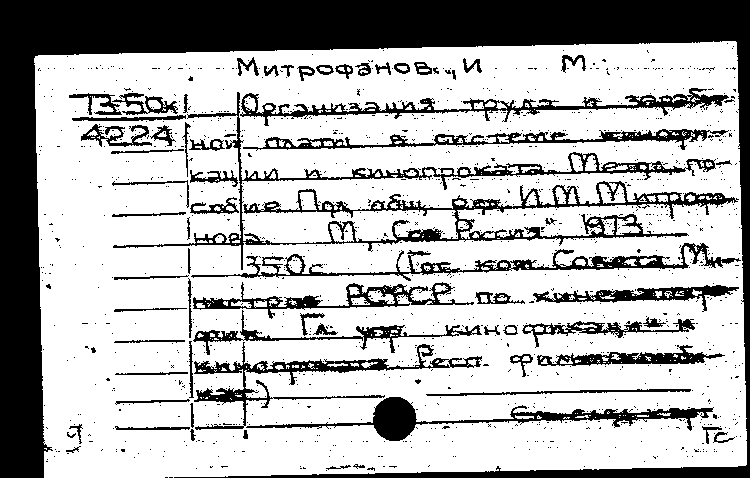 Митрофанов, И М.
73-50к
4224
Организация труда и заработ-
ной платы в системе кинофи-
кации и кинопроката. Метод. по-
собие Под общ. ред. И.М. Митрофа
нова. М., "Сов Россия", 1973.
350с (Гос. ком. Совета Ми-
нистров РСФСР по кинематогра-
фии. Гл. упр. кинофикации и
кинопроката Респ. фильмокомби-
нат)
См. след. карт.
9
Тс